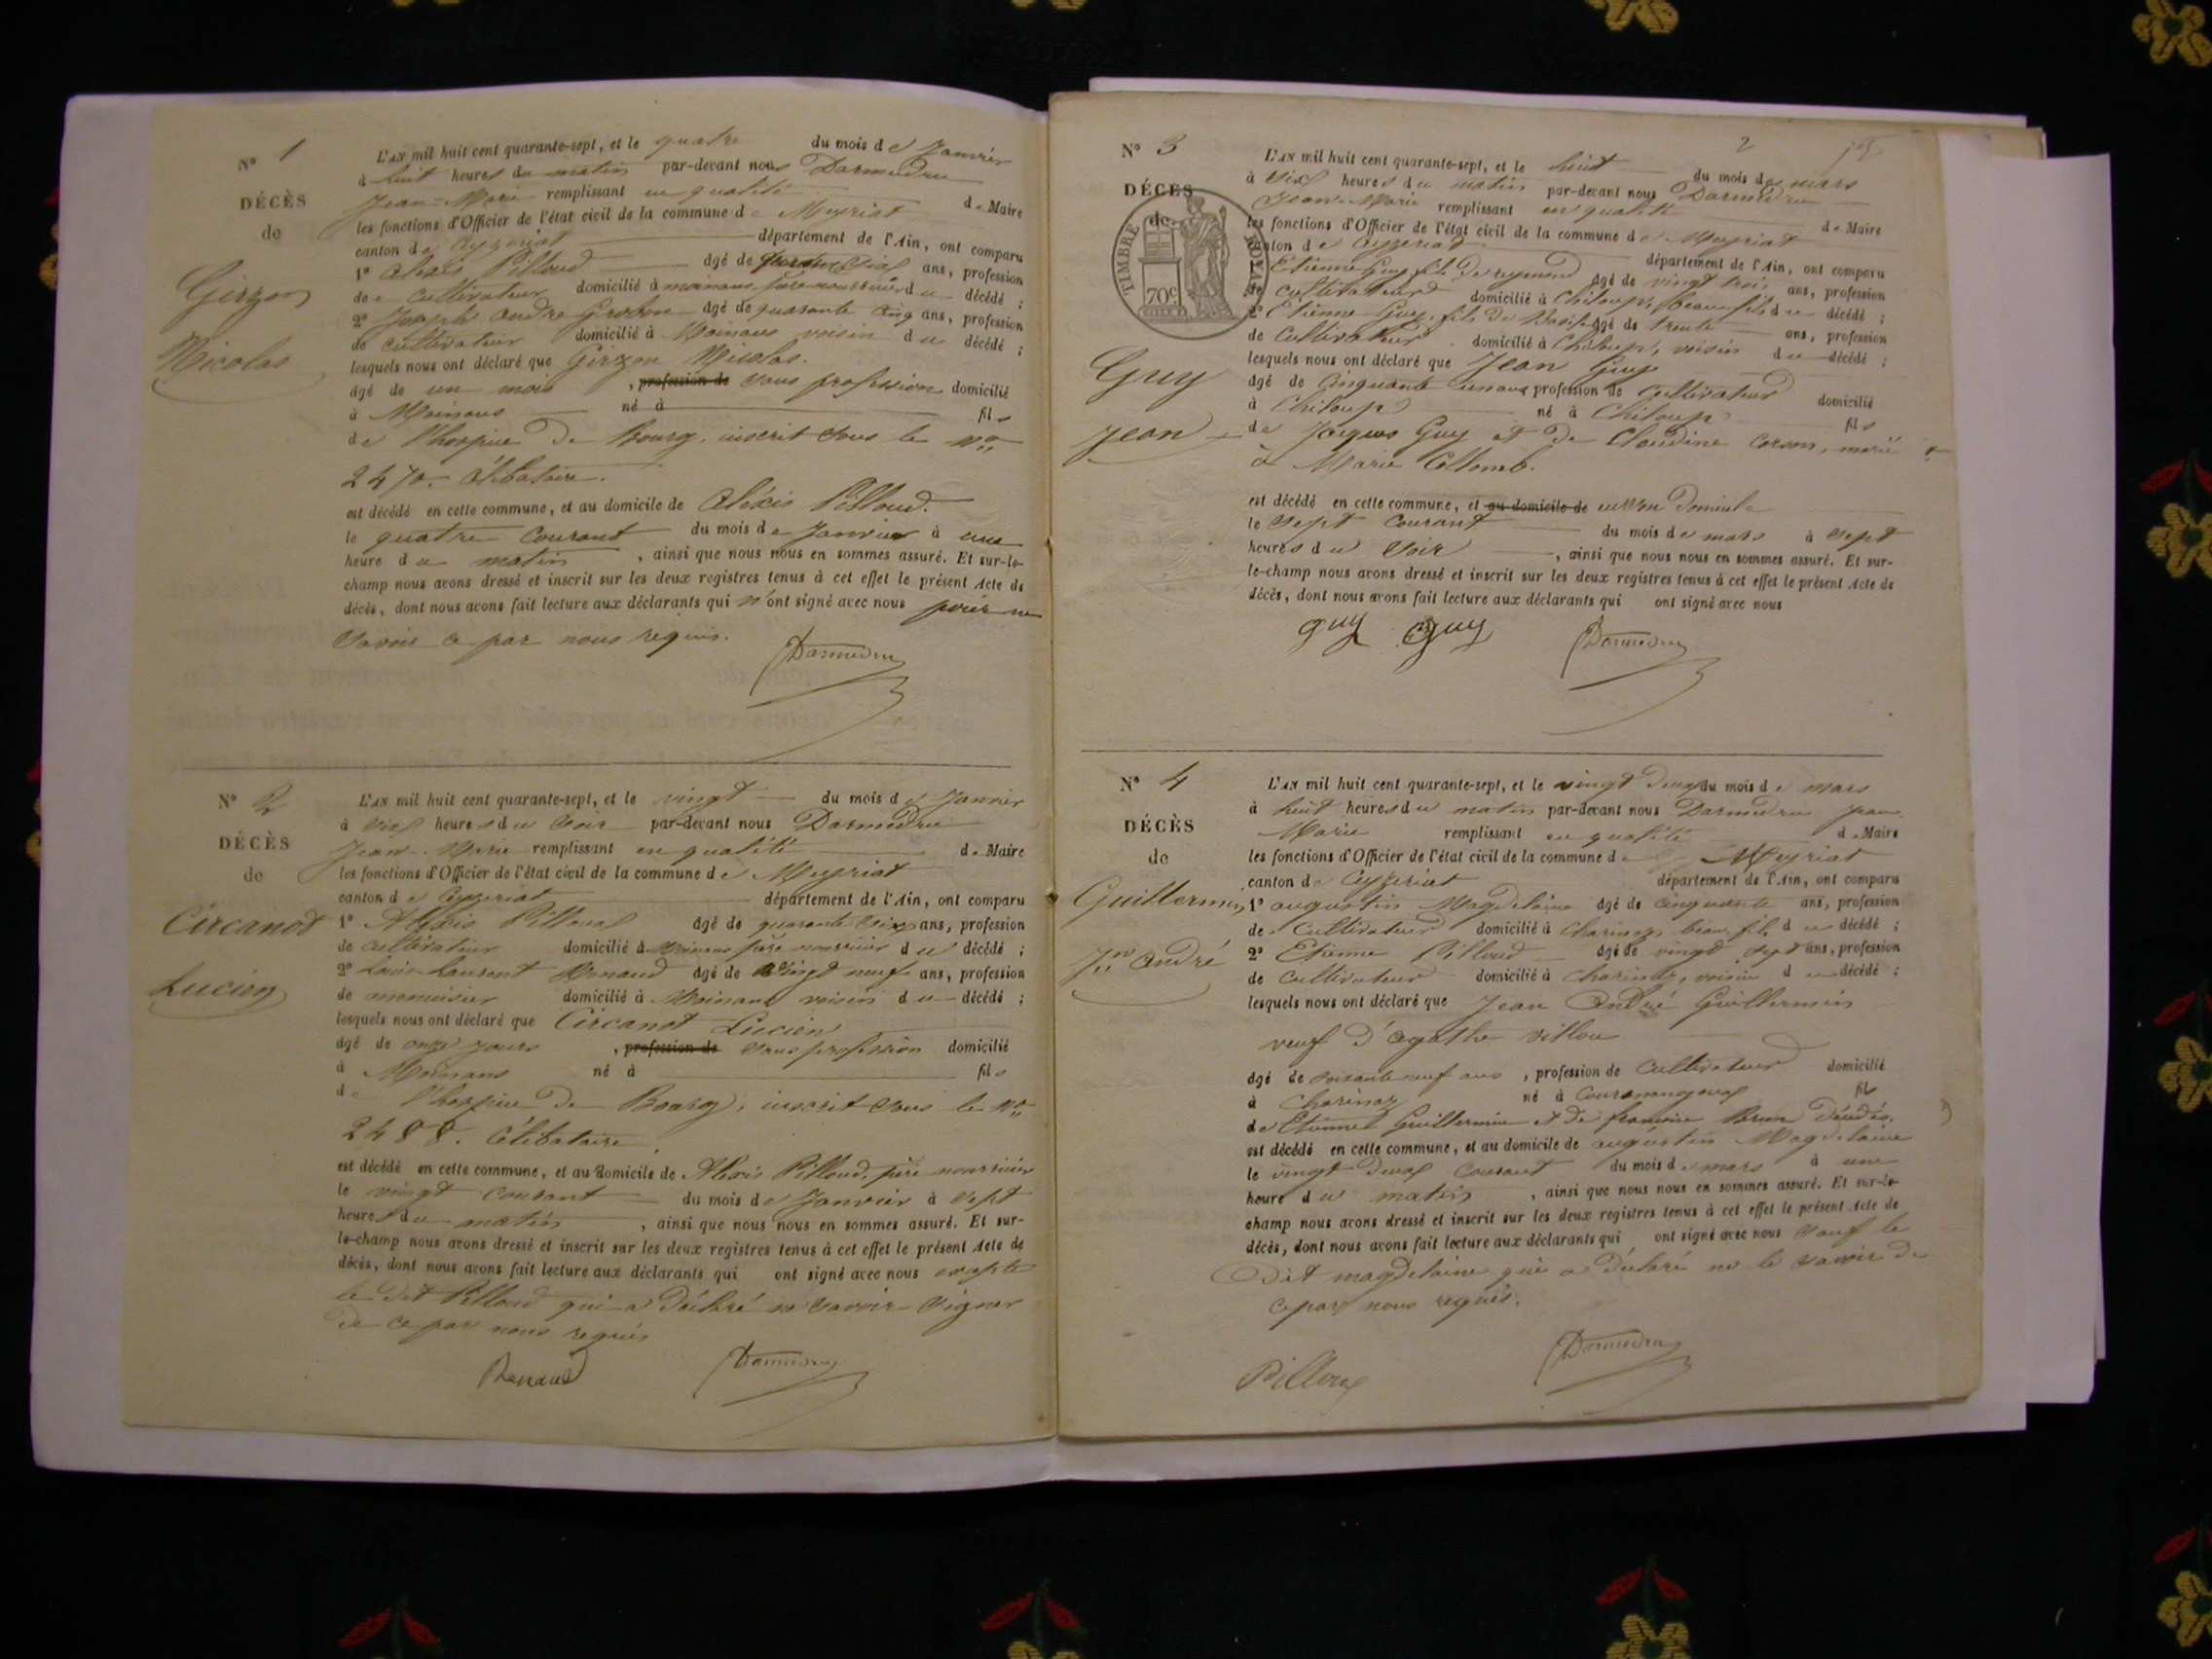 N° 1
DÉCÈS
de
Girzon
Nicolas
L'AN mil huit cent quarante-sept, et le quatre du mois de Janvier
à huit heures du matin par-devant nous Darmedru
Jean-Marie remplissant en qualité de Maire
les fonctions d'Officier de l'état civil de la commune de Meyriat
canton de Ceyzeriat département de l'Ain, ont comparu
1° Alexis Pilloud âgé de quarante six ans, profession
de cultivateur domicilié à Moinans, père nourricier du décédé ;
2° Joseph André Grobon âgé de quarante cinq ans, profession
de cultivateur domicilié à Moinans voisin du décédé ;
lesquels nous ont déclaré que Girzon Nicolas.
âgé de un mois , profession de sans profession domicilié
à Moinans né à fils
de l'hospice de Bourg, inscrit sous le n°
2470. Célibataire.
est décédé en cette commune, et au domicile de Aléxis Pilloud.
le quatre courant du mois de Janvier à une
heure du matin , ainsi que nous nous en sommes assuré. Et sur-le-
champ nous avons dressé et inscrit sur les deux registres tenus à cet effet le présent Acte de
décès, dont nous avons fait lecture aux déclarants qui n'ont signé avec nous pour ne
savoir ce par nous requis.
Darmedru
N° 2
DÉCÈS
de
Circanot
Lucien
L'AN mil huit cent quarante-sept, et le vingt du mois de Janvier
à six heures du soir par-devant nous Darmedru
Jean-Marie remplissant en qualité de Maire
les fonctions d'Officier de l'état civil de la commune de Meyriat
canton de Ceyzeriat département de l'Ain, ont comparu
1° Alexis Pilloud âgé de quarante six ans, profession
de cultivateur domicilié à Moinans père nourricier du décédé ;
2° Louis Laurent Renaud âgé de vingt neuf ans, profession
de menuisier domicilié à Moinans voisin du décédé ;
lesquels nous ont déclaré que Circanot Lucien
âgé de onze jours , profession de sans profession domicilié
à Moinans né à fils
de l'hospice de Bourg, inscrit sous le n°
2488. Célibataire.
est décédé en cette commune, et au domicile de Alexis Pilloud, père nourricier
le vingt courant du mois de Janvier à sept
heures du matin , ainsi que nous nous en sommes assuré. Et sur-
le-champ nous avons dressé et inscrit sur les deux registres tenus à cet effet le présent Acte de
décès, dont nous avons fait lecture aux déclarants qui ont signé avec nous excepté
le dit Pilloud qui a déclaré ne savoir signer
de ce par nous requis
Renaud Darmedru
2
N° 3
DÉCÈS
de
TIMBRE ROYAL
70c
Guy
Jean
L'AN mil huit cent quarante-sept, et le huit du mois de mars
à six heures du matin par-devant nous Darmedru
Jean-Marie remplissant en qualité de Maire
les fonctions d'Officier de l'état civil de la commune de Meyriat
canton de Ceyzeriat département de l'Ain, ont comparu
1° Etienne Guy fils de âgé de vingt trois ans, profession
de cultivateur domicilié à Chiloup, beau-fils du décédé ;
2° Etienne Guy, fils de âgé de trente ans, profession
de cultivateur domicilié à Chiloup, voisin du décédé ;
lesquels nous ont déclaré que Jean Guy
âgé de cinquante un ans profession de cultivateur domicilié
à Chiloup né à Chiloup fils
de Jacques Guy et de Claudine Corson, marié
à Marie Collomb.
est décédé en cette commune, et au domicile de en son domicile
le sept courant du mois de mars à sept
heures du soir , ainsi que nous nous en sommes assuré. Et sur-
le-champ nous avons dressé et inscrit sur les deux registres tenus à cet effet le présent Acte de
décès, dont nous avons fait lecture aux déclarants qui ont signé avec nous
guy Guy Darmedru
N° 4
DÉCÈS
de
Guillermin
Jn André
L'AN mil huit cent quarante-sept, et le vingt deux du mois de mars
à huit heures du matin par-devant nous Darmedru Jean
Marie remplissant en qualité de Maire
les fonctions d'Officier de l'état civil de la commune de Meyriat
canton de Ceyzeriat département de l'Ain, ont comparu
1° augustin Magdelaine âgé de cinquante ans, profession
de cultivateur domicilié à Charinaz beau-fils du décédé ;
2° Etienne Pilloud âgé de vingt sept ans, profession
de cultivateur domicilié à Charinaz, voisin du décédé ;
lesquels nous ont déclaré que Jean André Guillermin
veuf d'agathe villou
âgé de soixante neuf ans , profession de cultivateur domicilié
à Charinaz né à fils
de Etienne Guillermin et de françoise Brun décédés.
est décédé en cette commune, et au domicile de augustin Magdelaine
le vingt deux courant du mois de mars à une
heure du matin , ainsi que nous nous en sommes assuré. Et sur-le-
champ nous avons dressé et inscrit sur les deux registres tenus à cet effet le présent Acte de
décès, dont nous avons fait lecture aux déclarants qui ont signé avec nous sauf le
dit magdelaine qui a déclaré ne le savoir de
ce par nous requis.
Pilloud Darmedru